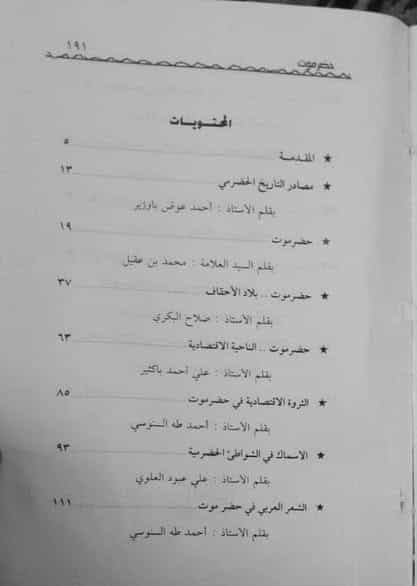 حضرموت ١٩١
المحتويات
★ المقدمة ٥
★ مصادر التاريخ الحضرمي ١٣
بقلم الاستاذ : أحمد عوض باوزير
★ حضرموت ١٩
بقلم السيد العلامة : محمد بن عقيل
★ حضرموت .. بلاد الأحقاف ٣٧
بقلم الاستاذ : صلاح البكري
★ حضرموت .. الناحية الاقتصادية ٦٣
بقلم الاستاذ : علي أحمد باكثير
★ الثروة الاقتصادية في حضرموت ٨٥
بقلم الاستاذ : أحمد طه السنوسي
★ الاسماك في الشواطئ الحضرمية ٩٣
بقلم الاستاذ : علي عبود العلوي
★ الشعر العربي في حضر موت ١١١
بقلم الاستاذ : أحمد طه السنوسي